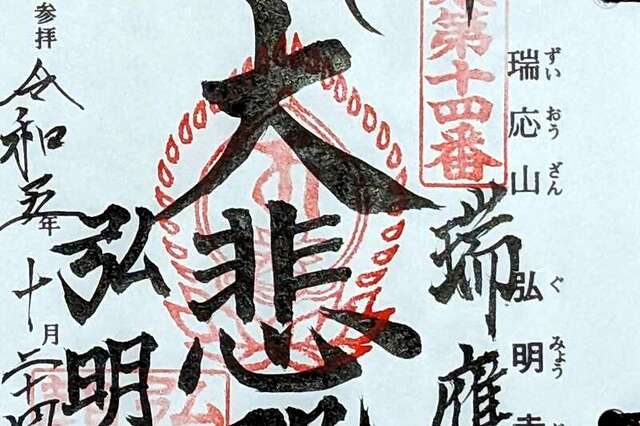 第十四番
瑞応山 弘明寺
ずいおうざん ぐみょう
瑞應
大悲
弘明
参拝
令和五年十月二十四